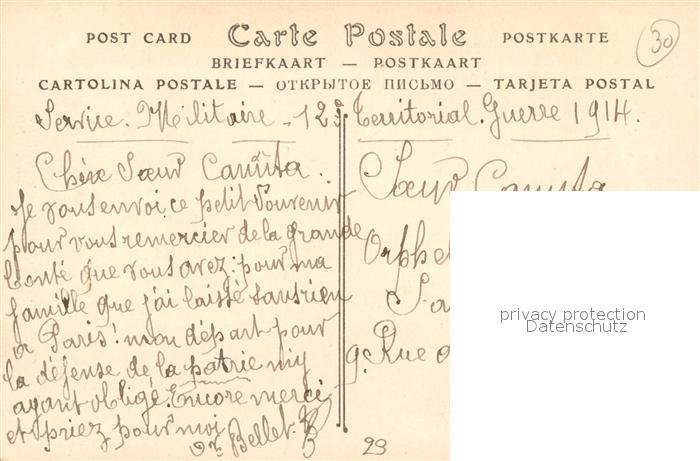 30
POST CARD Carte Postale POSTKARTE
BRIEFKAART — POSTKAART
CARTOLINA POSTALE — ОТКРЫТОЕ ПИСЬМО — TARJETA POSTAL
Service. Militaire - 12e Territorial. Guerre 1914.
Chère Sœur Canuta.
Je vous envoi ce petit Souvenir
pour vous remercier de la grande
bonté que vous avez: pour ma
famille que j'ai laissé sans rien
a Paris! mon départ pour
la défense de la patrie m'y
ayant obligé. Encore merci
et priez pour moi
Bellet.
Sœur Canuta
Orphe
9. Rue
privacy protection
Datenschutz
29